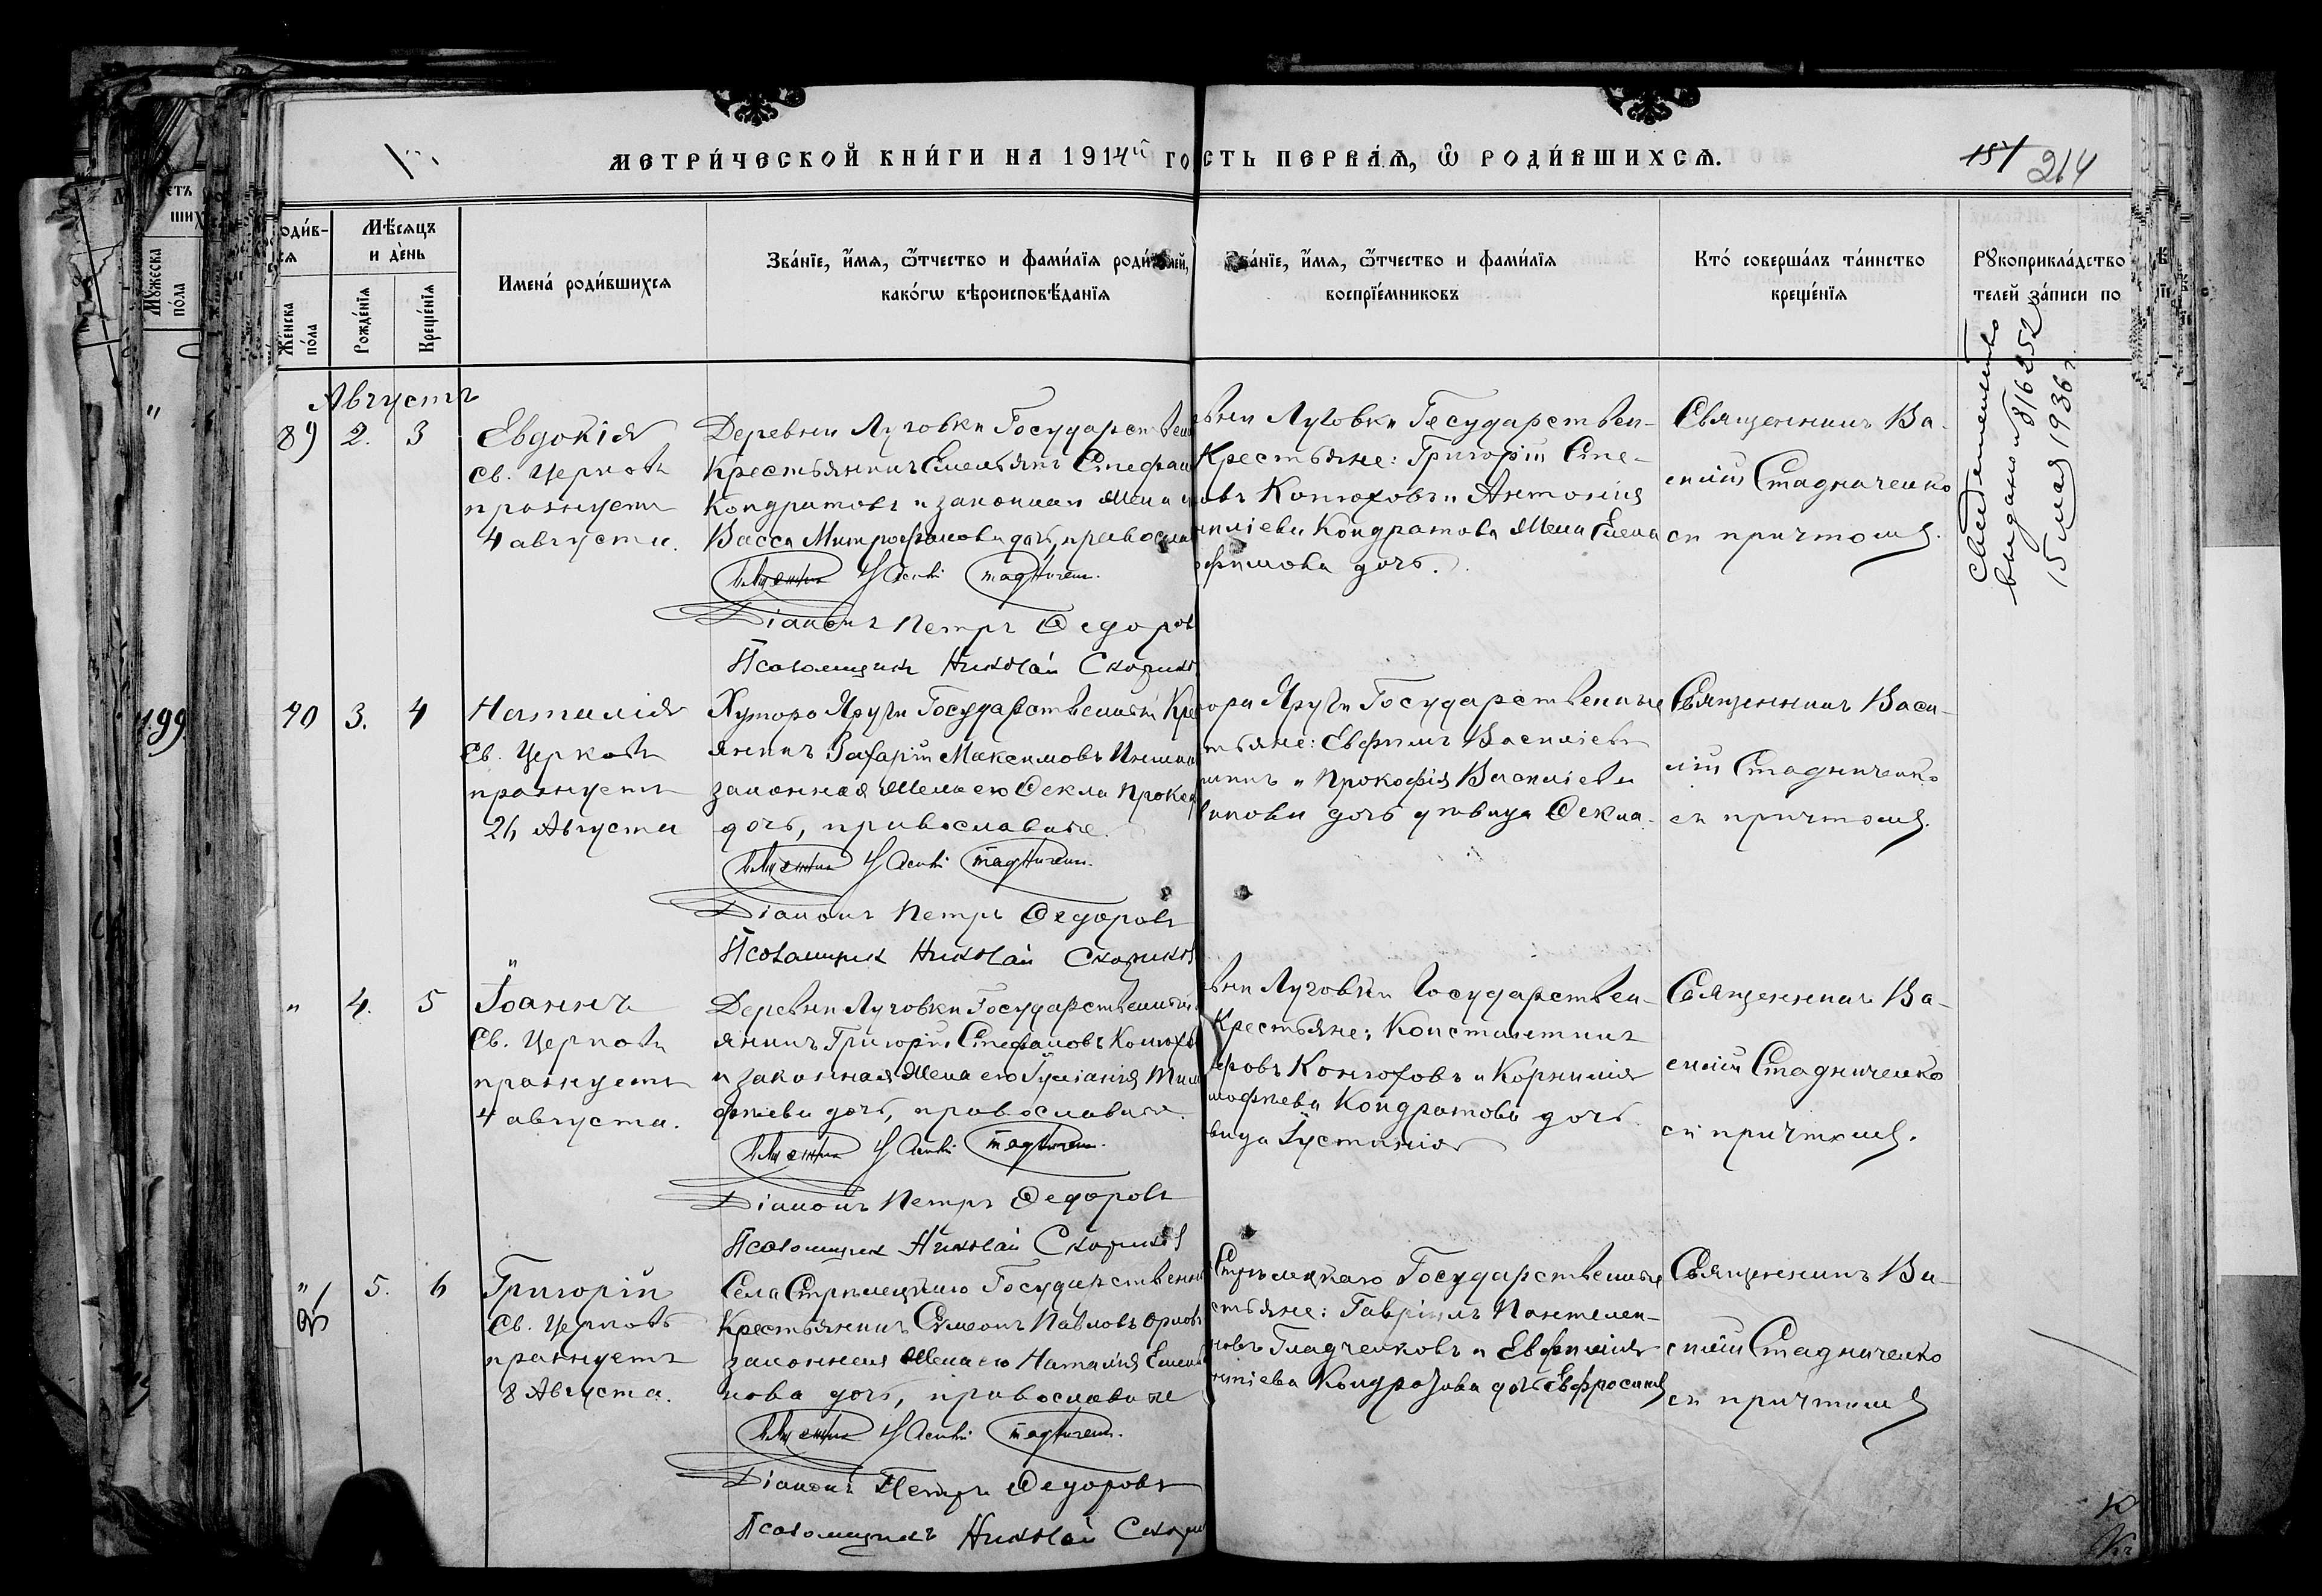 МЕТРИ́ЧЕСКОЙ КНИ́ГИ НА 1914й ГО
СТЬ ПЕРВА́Ѧ, Ѿ РОДИ́ВШИХСѦ.
157 214
оди́в-
сѧ
Мѣ́сѧцъ
и де́нь
Же́нска
по́ла
Рожде́нїѧ
Креще́нїѧ
Имена̀ роди́вшихсѧ
Зва́нїе, и҆́мѧ, ѻ҆́тчество и фами́лїѧ роди́телей,
како́гѡ вѣроисповѣ́данїѧ
Зва́нїе, и҆́мѧ, ѻ҆́тчество и фами́лїѧ
воспрїе́мниковъ
Кто́ соверша́лъ та́инство
креще́нїѧ
Рꙋкоприкла́дство
телей за́писи по
Мꙋ́жеска
по́ла
Августъ
89 2. 3
Евдокія
Св. Церковь
празнуетъ
4 августа.
Деревни Луговки Государствен
Крестьянинъ Емельянъ Стефан
Кондратовъ и законная жена
Васса Митрофанова дочь, правосла
Священникъ Василій Стадничен.
Діаконъ Петръ Ѳедоров
Псаломщикъ Николай Скорик
вни Луговки Государствен-
Крестьяне: Григорій Сте-
овъ Конюховъ и Антонія
силіева Кондратова жена Емель
фимова дочь.
Священникъ Ва-
силій Стадниченко
съ причтомъ.
Свидетельство
выдано № 816252
15 мая 1936 г.
199
90 3. 4
Наталія
Св. Церковь
празнуетъ
26 Августа
Хутора Яруги Государственный Кре
янинъ Захарій Максимовъ
законная жена его Ѳекла Проко
дочь, православные.
Священникъ Василій Стадничен.
Діаконъ Петръ Ѳедоровъ
Псаломщикъ Николай Скориков
ора Яруги Государственные
тьяне: Евфимъ Василіевъ
и Прокофія Василіева
дочь Ѳекла.
Священникъ Васи-
лій Стадниченко
съ причтомъ.
" 4. 5
Іоаннъ
Св. Церковь
празнуетъ
4 августа.
Деревни Луговки Государственный
янинъ Григорій Стефановъ Конюхо
и законная жена его Іуліанія Тим
фѣева дочь, православные.
Священникъ Василій Стадничен.
Діаконъ Петръ Ѳедоровъ
Псаломщикъ Николай Скориков
вни Луговки Государствен-
Крестьяне: Константинъ
Конюховъ и Корнилія
мофѣева Кондратова дочь
вица Іустинія
Священникъ Ва-
силій Стадниченко
съ причтомъ.
" 5. 6
Григорій
Св. Церковь
празнуетъ
8 Августа.
Села Стрѣлецкаго Государственный
Крестьянинъ Симеонъ Павловъ Орловъ
законная жена его Наталія Емель
нова дочь, православные
Священникъ Василій Стадничен.
Діаконъ Петръ Ѳедоровъ
Псаломщикъ Николай Скорик
Стрѣлецкаго Государственные
стьяне: Гавріилъ Пантелеи-
новъ Гладченковъ и Евфимія
Кондратова дочь Евфросинія
Священникъ Ва-
силій Стадниченко
съ причтомъ